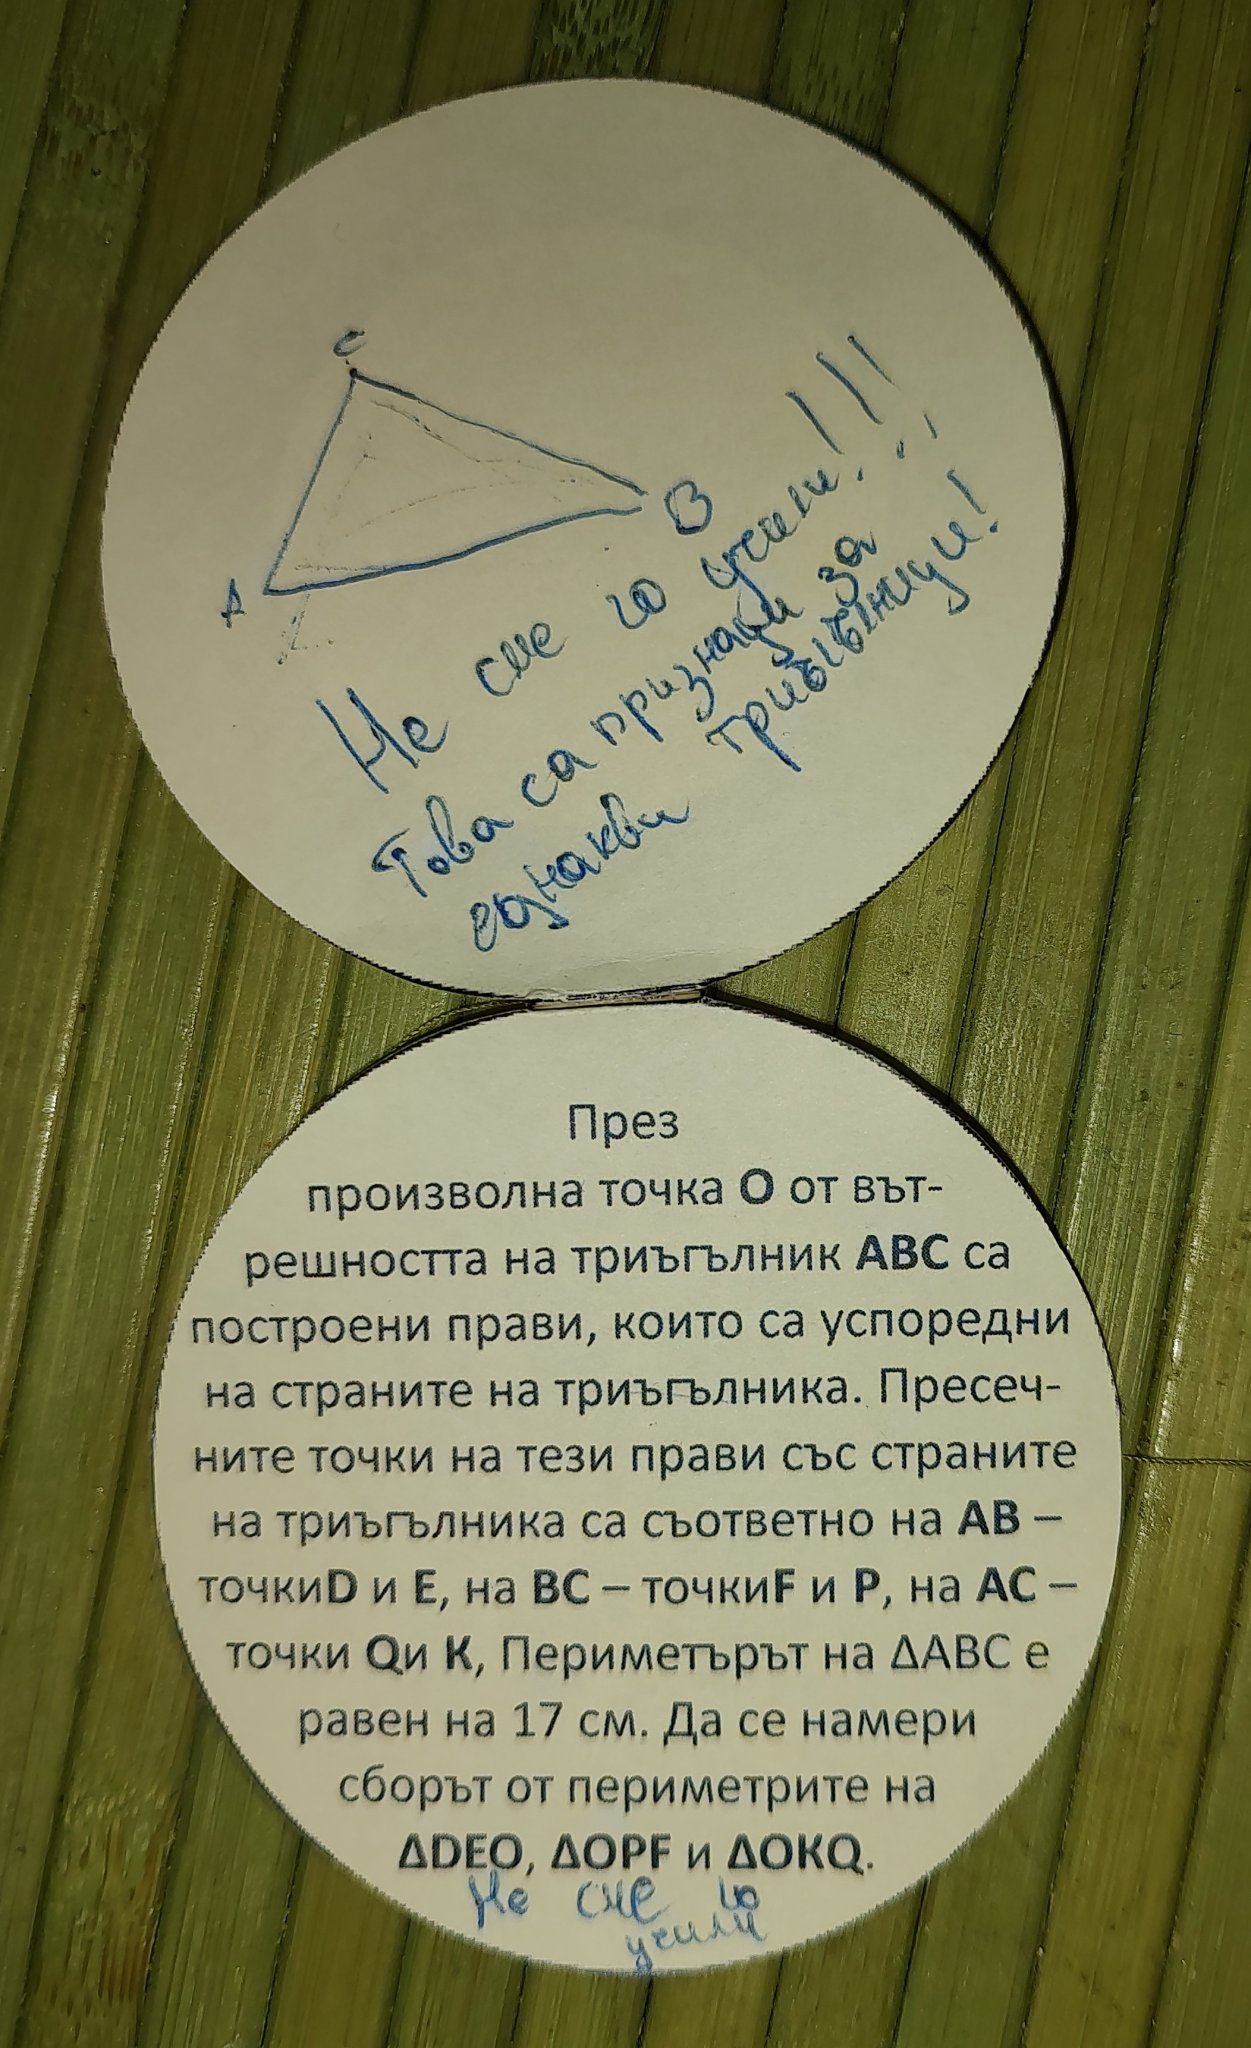 C
A
B
Не сме го учили!!!
Това са признаци за
еднакви триъгълници!
През
произволна точка O от вът-
решността на триъгълник ABC са
построени прави, които са успоредни
на страните на триъгълника. Пресеч-
ните точки на тези прави със страните
на триъгълника са съответно на AB –
точкиD и E, на BC – точкиF и P, на AC –
точки Qи K, Периметърът на ΔABC е
равен на 17 см. Да се намери
сборът от периметрите на
ΔDEO, ΔOPF и ΔOKQ.
Не сме го
учили